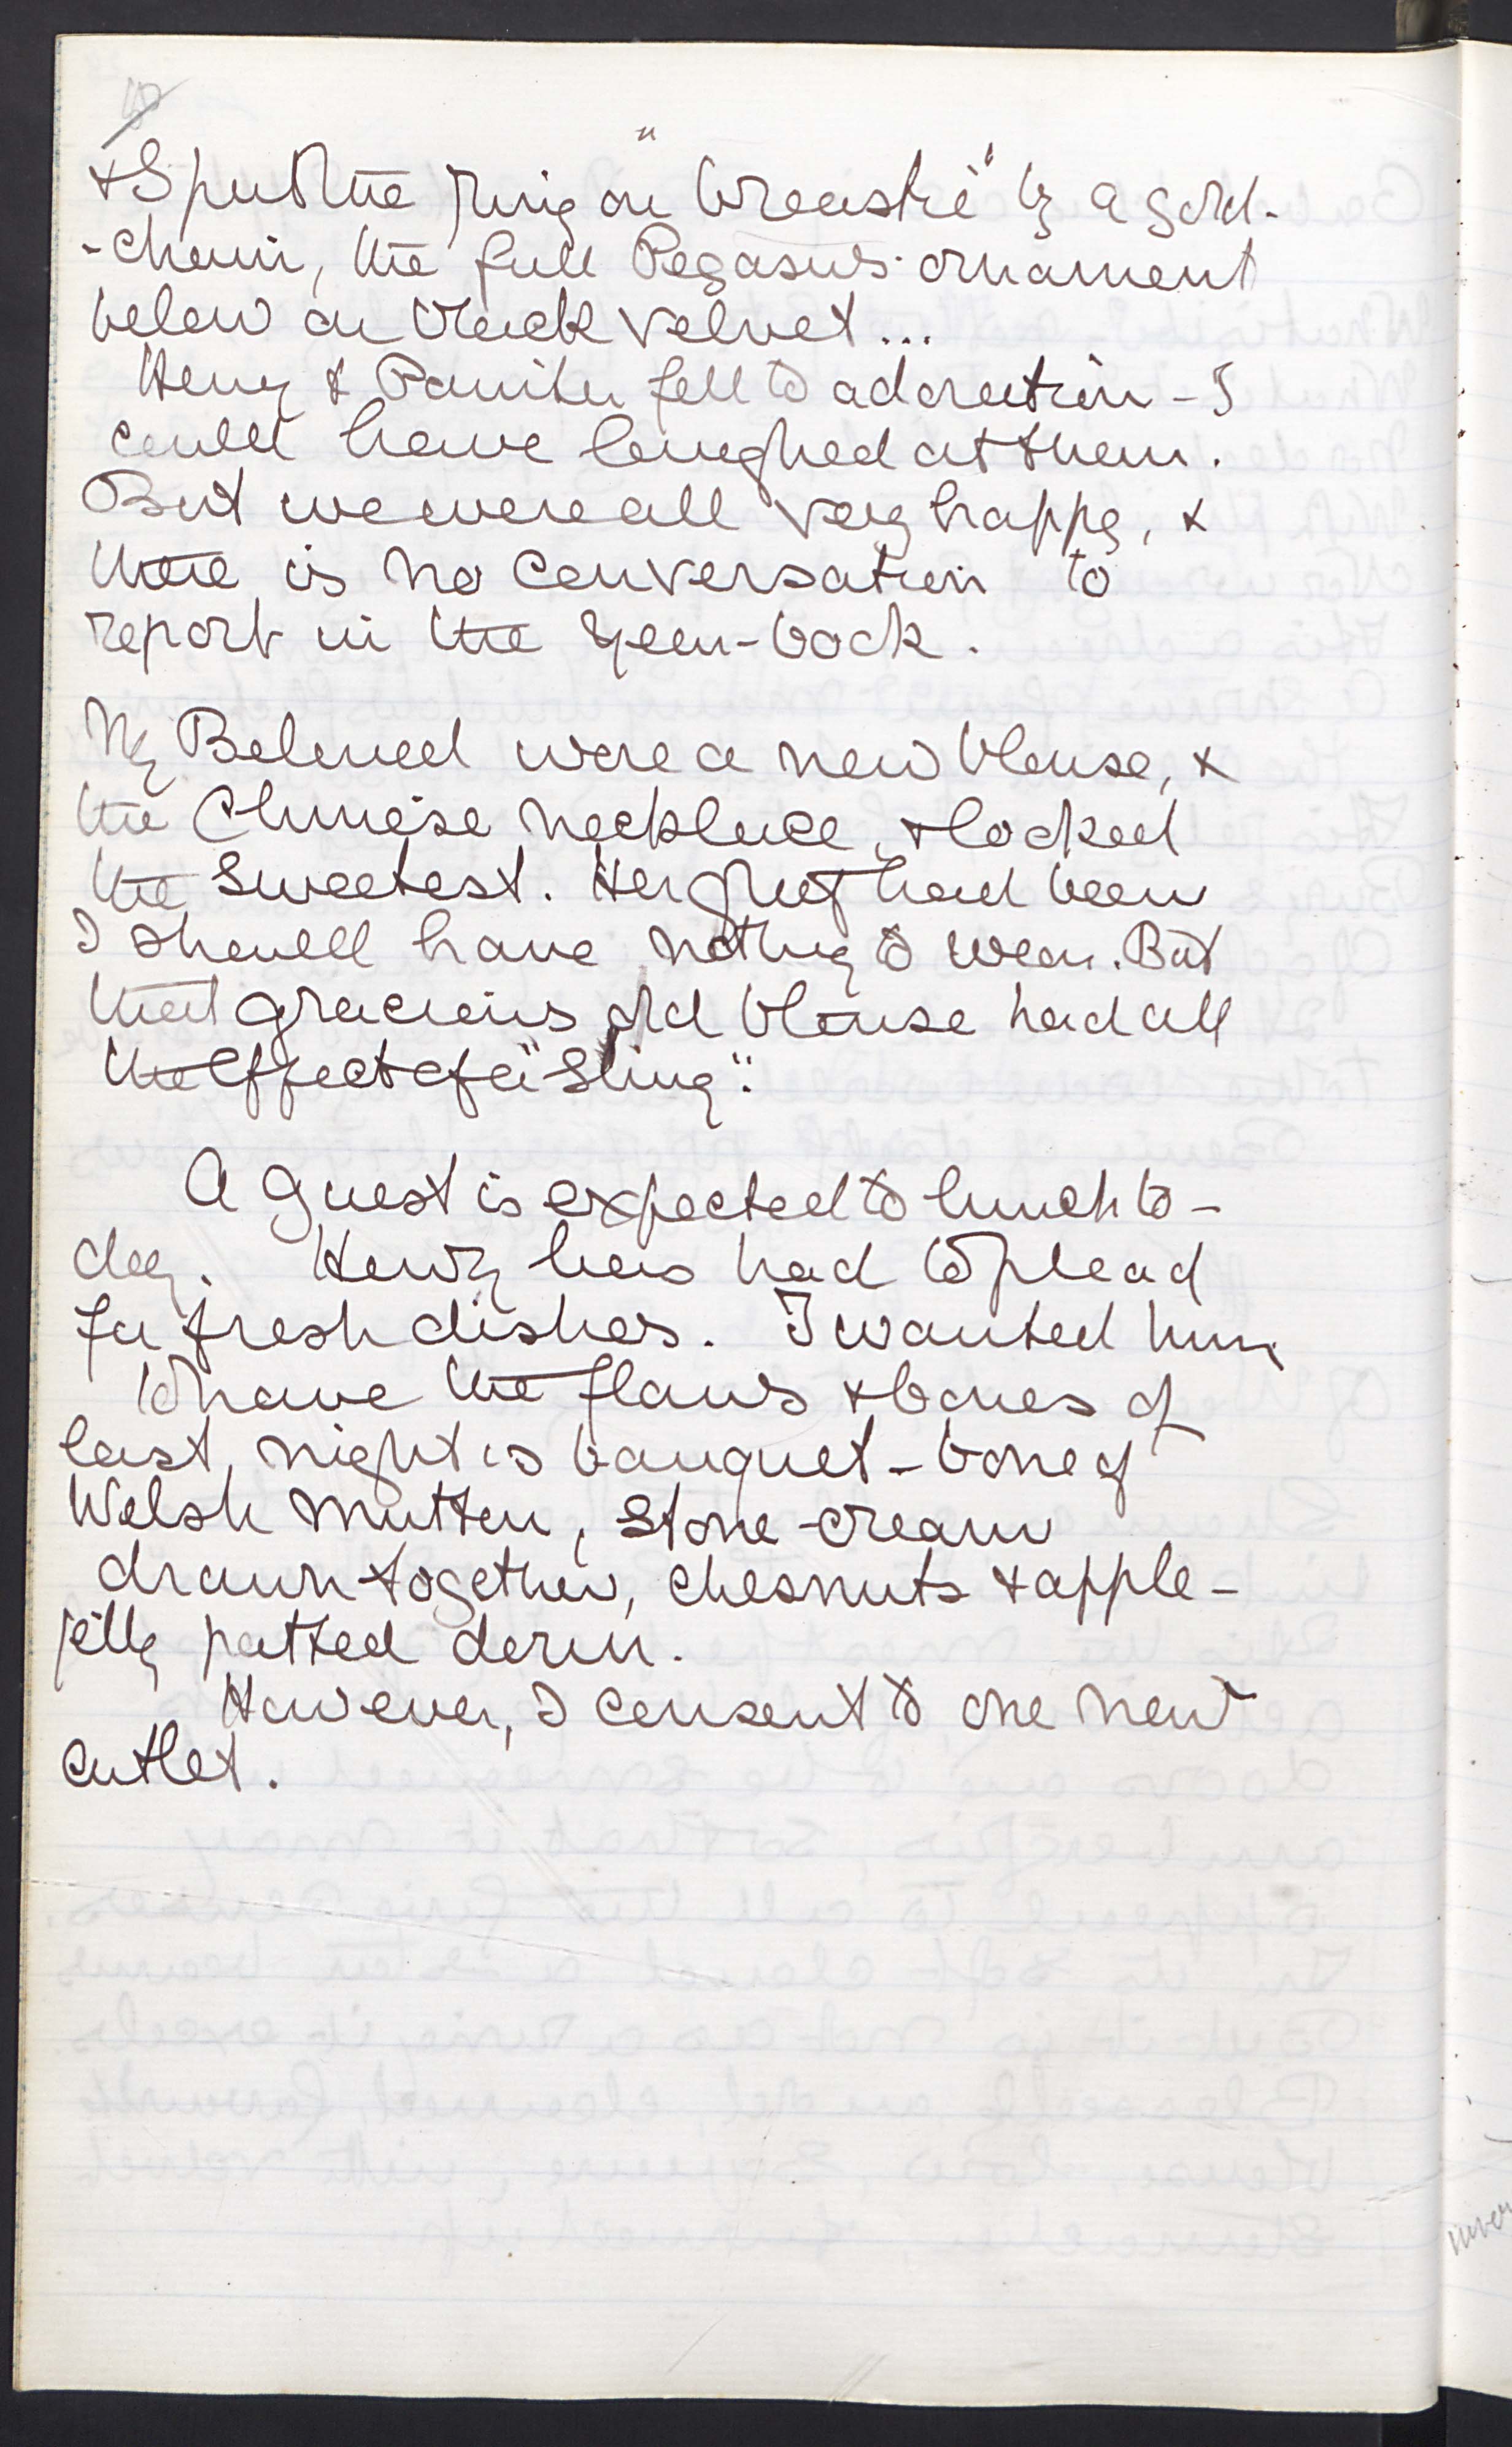 & I put the ring on "breastie" by a gold-
-chain, the full Pegasus-ornament
below on black velvet...
Henry & Painter fell to adoration - I
could have laughed at them.
But we were all very happy, &
there is no conversation to
report in the Year-book.
My Beloved wore a new blouse, &
the Chinese necklace, & looked
the sweetest. Her grief had been
I should have nothing to wear. But
that gracious old blouse had all
the effect of a "Sling".
A guest is expected to lunch to-
day. Henry has had to plead
for fresh dishes. I wanted him
to have the flaws & bones of
last night's banquet - bone of
Welsh mutton, stone-cream
drawn together, chesnuts & apple-
jelly patted down.
However, I consent to one new
cutlet.